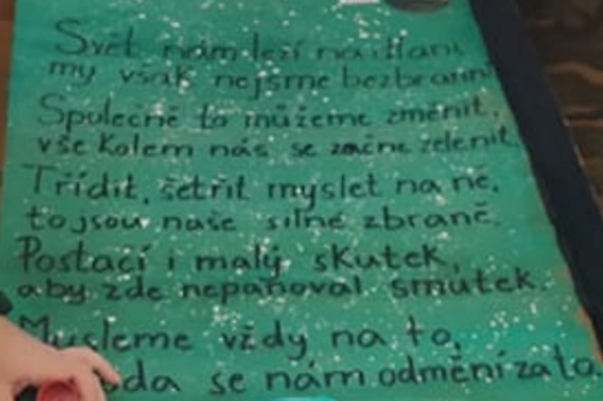 Svět nám leží na dlani
my však nejsme bezbranní
Společně to můžeme změnit,
vše kolem nás se začne zelenit.
Třídit, šetřit myslet na ně,
to jsou naše silné zbraně.
Postačí i malý skutek,
aby zde nepanoval smutek.
Mysleme vždy na to,
se nám odmění za to